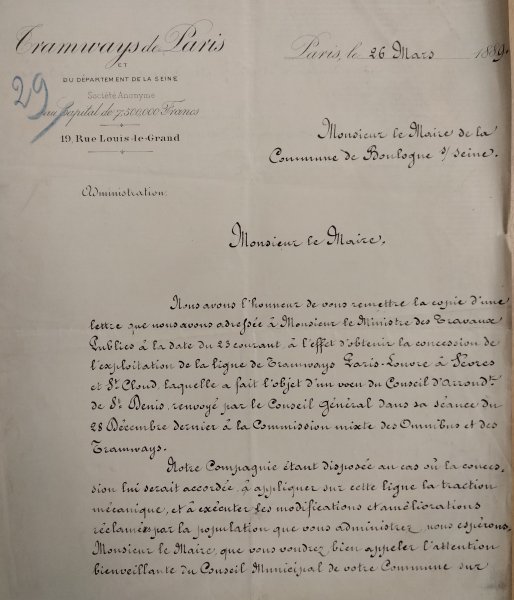 Tramways de Paris
ET
DU DÉPARTEMENT DE LA SEINE
Société Anonyme
au Capital de 7.500.000 Francs
19, Rue Louis-le-Grand
29
Administration.
Paris, le 26 Mars 1889.
Monsieur le Maire de la
Commune de Boulogne s/ Seine.
Monsieur le Maire,
Nous avons l'honneur de vous remettre la copie d'une
lettre que nous avons adressée à Monsieur le Ministre des Travaux
Publics à la date du 25 courant, à l'effet d'obtenir la concession de
l'exploitation de la ligne de Tramways Paris-Louvre à Sèvres
et St. Cloud, laquelle a fait l'objet d'un voeu du Conseil d'arrondt.
de St. Denis, renvoyé par le Conseil Général dans sa séance du
28 Décembre dernier à la Commission mixte des Omnibus et des
Tramways.
Notre Compagnie étant disposée au cas où la conces-
sion lui serait accordée, à appliquer sur cette ligne la traction
mécanique, et à exécuter les modifications et améliorations
réclamées par la population que vous administrez, nous espérons,
Monsieur le Maire, que vous voudrez bien appeler l'attention
bienveillante du Conseil Municipal de votre Commune sur